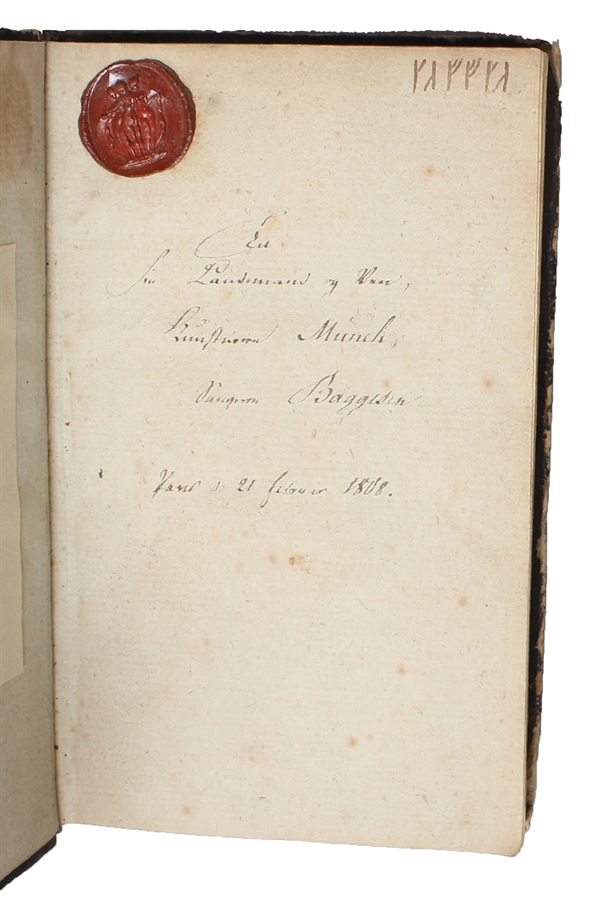 Til
sin Landsmand og Ven,
Kunstneren Münch,
Sangeren Baggesen
Paris d 21 Februar 1808.